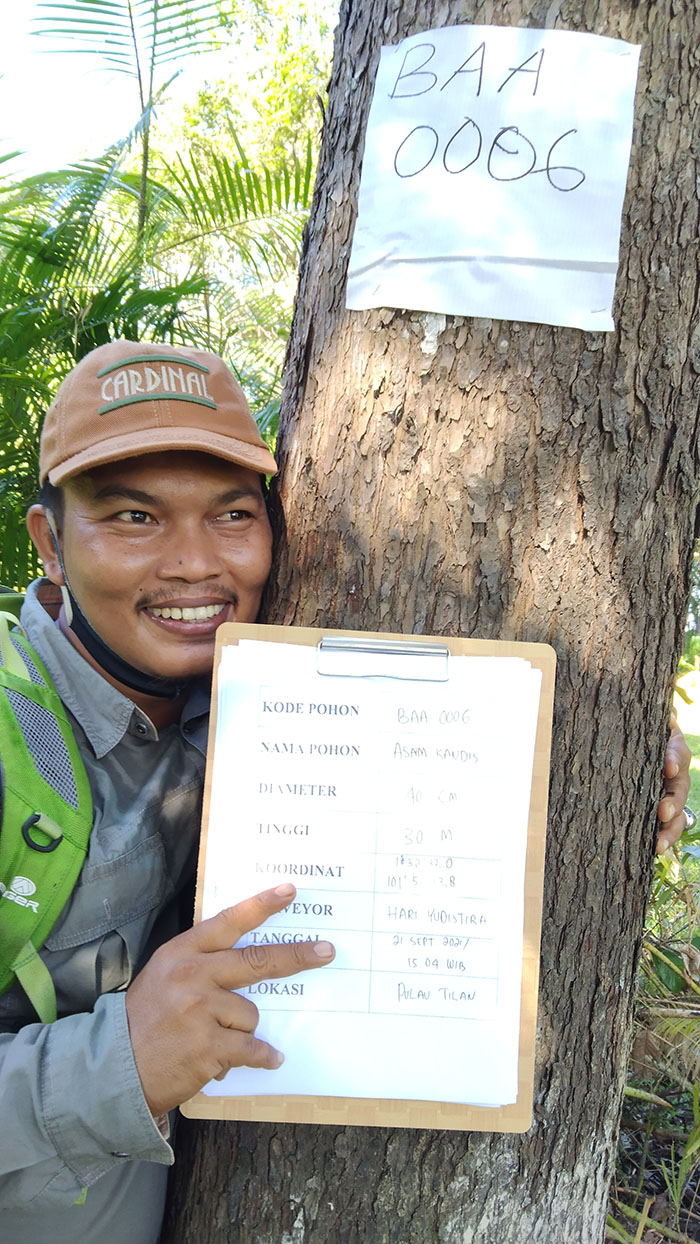 BAA
0006
CARDINAL
KODE POHON BAA 0006
NAMA POHON ASAM KANDIS
DIAMETER 40 CM
TINGGI 30 M
KOORDINAT
101° 5
VEYOR HARI YUDISTIRA
TANGGAL 21 SEPT 2021/
15 04 WIB
LOKASI PULAU TILAN